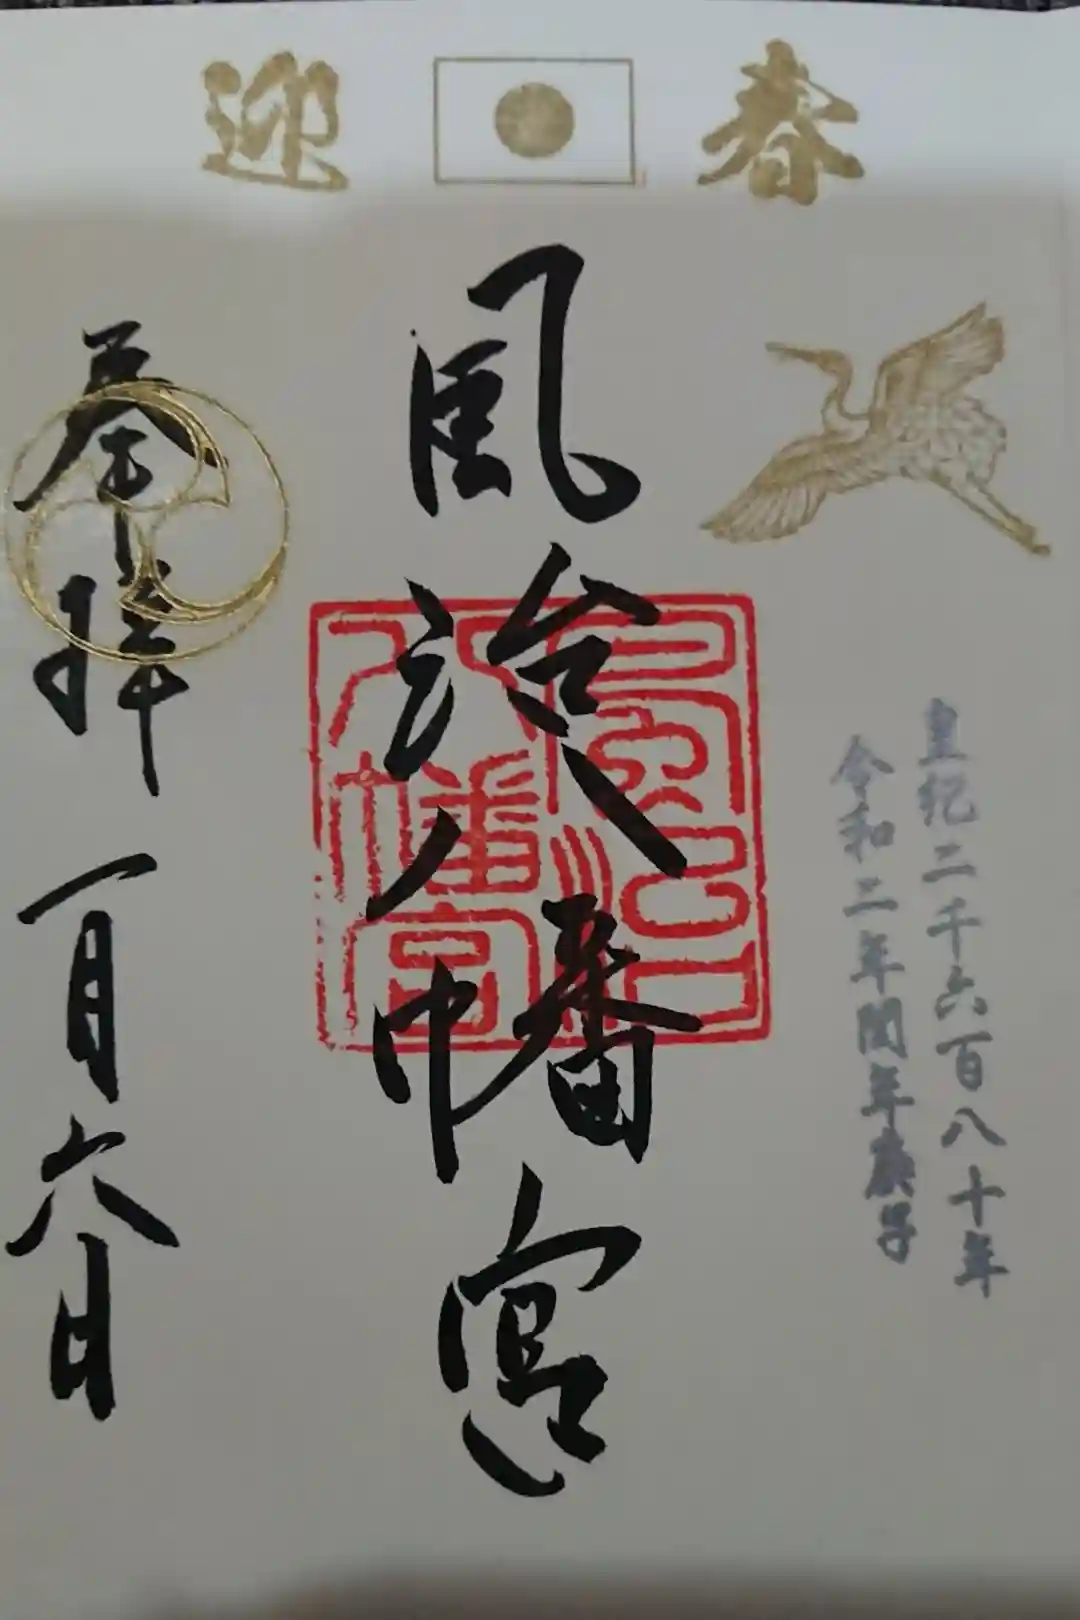 迎春
皇紀二千六百八十年
令和二年閏年庚子
風治八幡宮
風治八幡宮
奉拝
一月六日